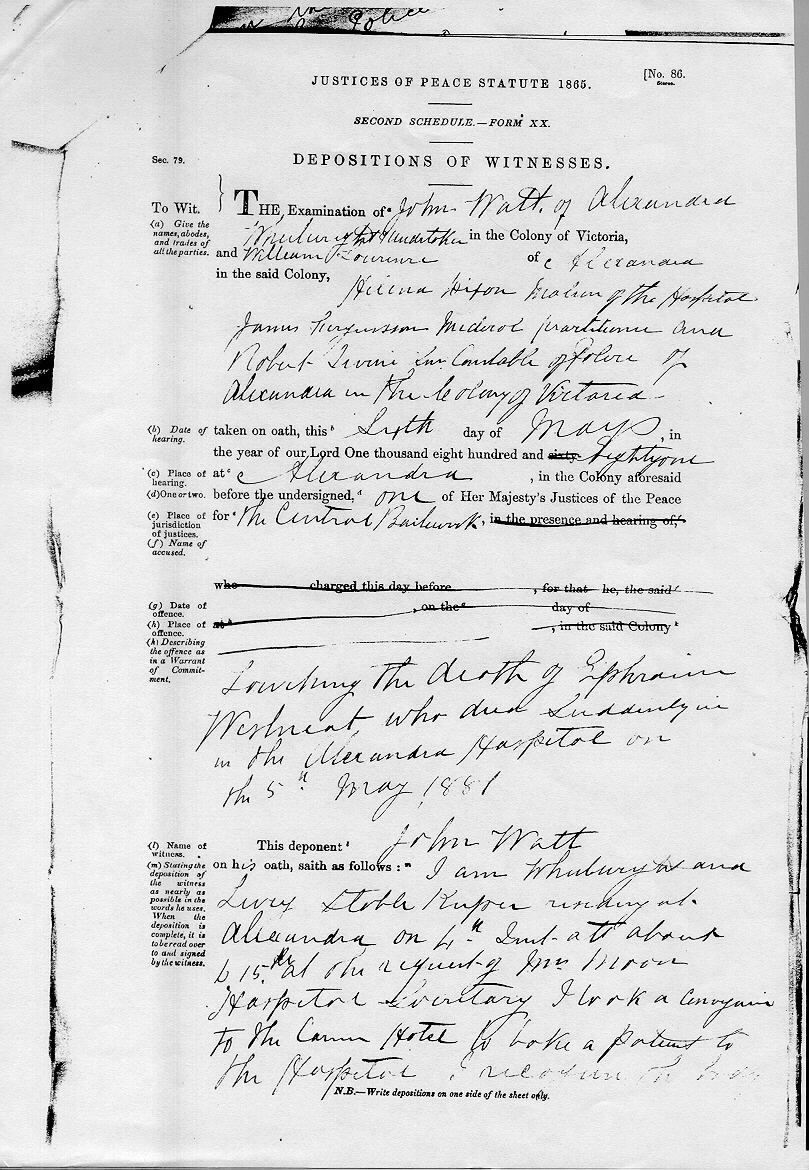 Police
JUSTICES OF PEACE STATUTE 1865.
[No. 86.
SECOND SCHEDULE.—FORM XX.
Sec. 79.
DEPOSITIONS OF WITNESSES.
To Wit.
THE Examination of a John Watt of Alexandra
(a) Give the names, abodes, and trades of all the parties.
in the Colony of Victoria,
and William of Alexandra
in the said Colony,
Hixon Matron of the Hospital
James Fergusson Medical practitioner and
Robert Irvine Constable of Police of
Alexandra in the Colony of Victoria
(b) Date of hearing.
taken on oath, this b Sixth day of May, in
the year of our Lord One thousand eight hundred and sixty Eightyone
(c) Place of hearing.
at c Alexandra, in the Colony aforesaid
(d) One or two.
before the undersigned, d one of Her Majesty's Justices of the Peace
(e) Place of jurisdiction of justices.
for e The Central Bailiwick, in the presence and hearing of, f
(f) Name of accused.
who charged this day before , for that he, the said
(g) Date of offence.
, on the day of
(h) Place of offence.
at , in the said Colony
(k) Describing the offence as in a Warrant of Commitment.
Touching the death of Ephraim
who died Suddenly in
in the Alexandra Hospital on
the 5th May 1881
(l) Name of witness.
This deponent l John Watt
(m) Stating the deposition of the witness as nearly as possible in the words he uses. When the deposition is complete, it is to be read over to and signed by the witness.
on his oath, saith as follows: m I am Wheelwright and
Livery Stable Keeper residing at
Alexandra on 4th Inst at about
6 15 at the request of Mr Moon
Hospital Secretary I took a conveyance
to the Hotel to take a patient to
the Hospital I recognise the body
N.B.—Write depositions on one side of the sheet only.